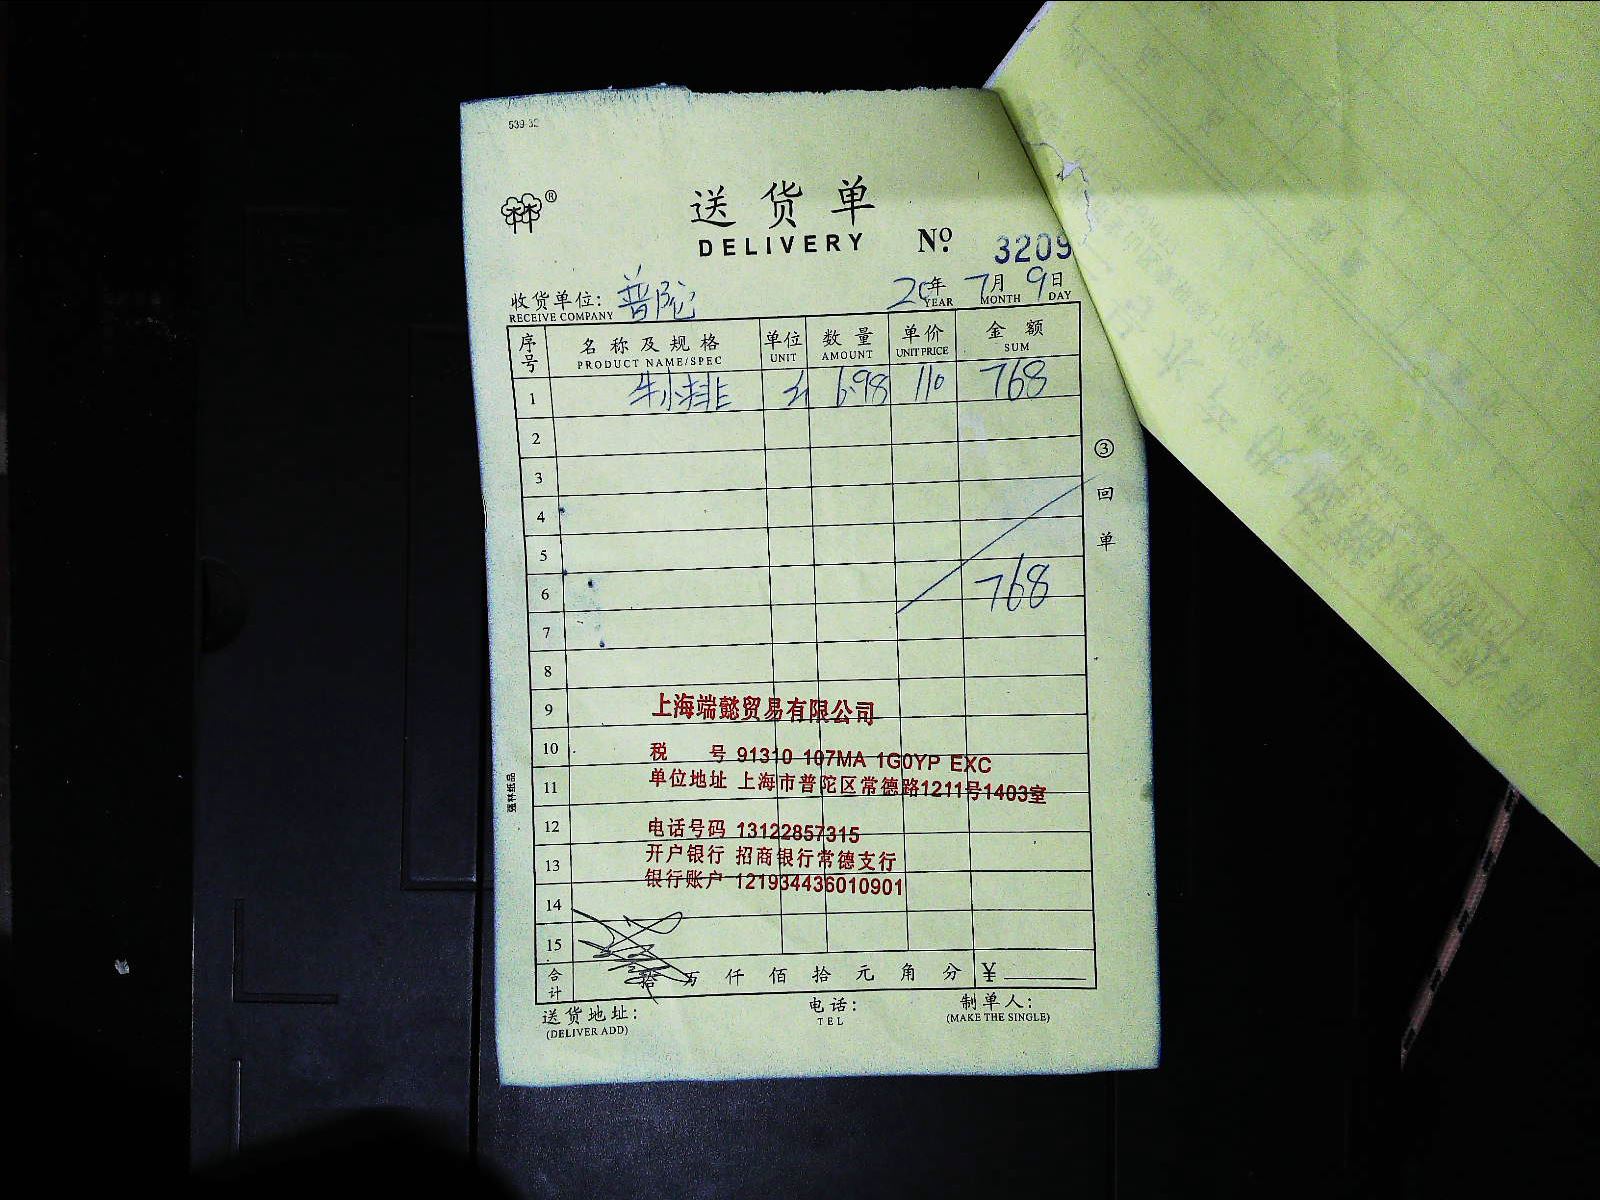 539-32
®
送货单
DELIVERY
No. 3209
收货单位: 普陀 20年 7月 9日
RECEIVE COMPANY YEAR MONTH DAY
序号 名称及规格 单位 数量 单价 金额
PRODUCT NAME/SPEC UNIT AMOUNT UNIT PRICE SUM
1 牛小排 6.98 110 768
2
3
4
5
6 768
7
8
9
10
11
12
13
14
15
③回单
上海端懿贸易有限公司
税 号 91310 107MA 1G0YP EXC
单位地址 上海市普陀区常德路1211号1403室
电话号码 13122857315
开户银行 招商银行常德支行
银行账户 121934436010901
强林纸品
合计 拾 万 仟 佰 拾 元 角 分 ¥
送货地址: 电话: 制单人:
(DELIVER ADD) TEL (MAKE THE SINGLE)